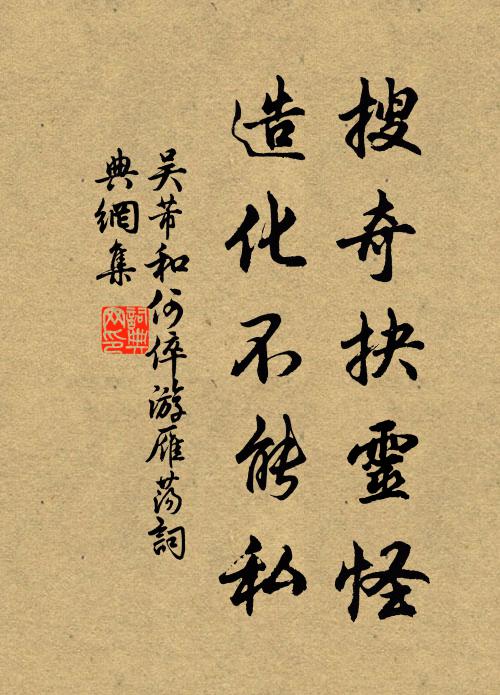 搜奇抉靈怪
造化不能私
吴芾和何倅游雁蕩詞
典網集
詞典网印